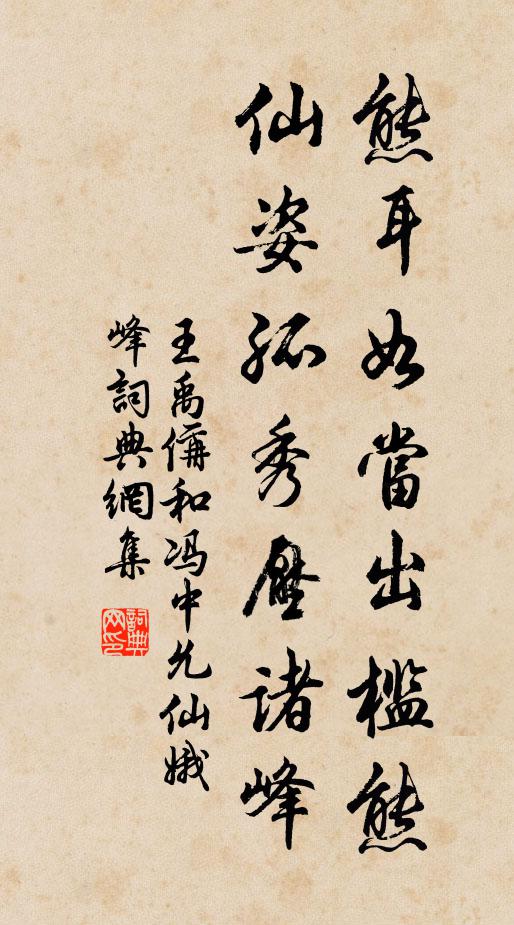 熊耳如當出檻熊
仙姿孤秀壓諸峰
王禹偁和冯中允仙娥
峰詞典網集
詞典
网印